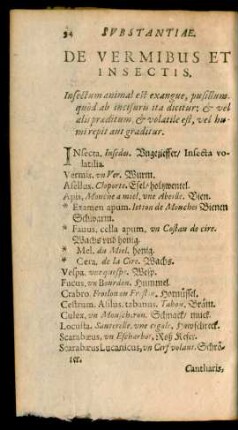 34 SVBSTANTIAE.
DE VERMIBUS ET
INSECTIS.
Insectum animal est exangue, pusillum,
quòd ab incisuris ita dicitur: & vel
alis præditum, & volatile est, vel hu-
mi repit aut graditur.
INsecta. Insectes. Ungezieffer/ Insecta vo-
latilia.
Vermis. un Ver. Wurm.
Asellus. Cloporte. Esel/
Apis, Mouche a miel, vne Abeille. Bien.
* Examen apum. Ietton de Mouches Bienen
Schwarm.
* Fauus, cella apum, vn Costau de cire.
Wachs und honig.
* Mel. du Miel. honig.
* Cera. de la Cire. Wachs.
Vespa. vne guespe. Wesp.
Fucus, vn Bourdon. Hummel.
Crabro. Froslon ou Hornüssel.
Oestrum. Asilus. tabanus. Tahon, Bräm.
Culex, vn Moucheron. Schnack/ muck.
Locusta. Sauterelle. vne cigale. Hewschreck.
Scarabæus, vn Escharbot, Roß Kefer.
Scarabæus Lucanicus, vn Cerf volant. Schrö-
ter.
Cantharis;